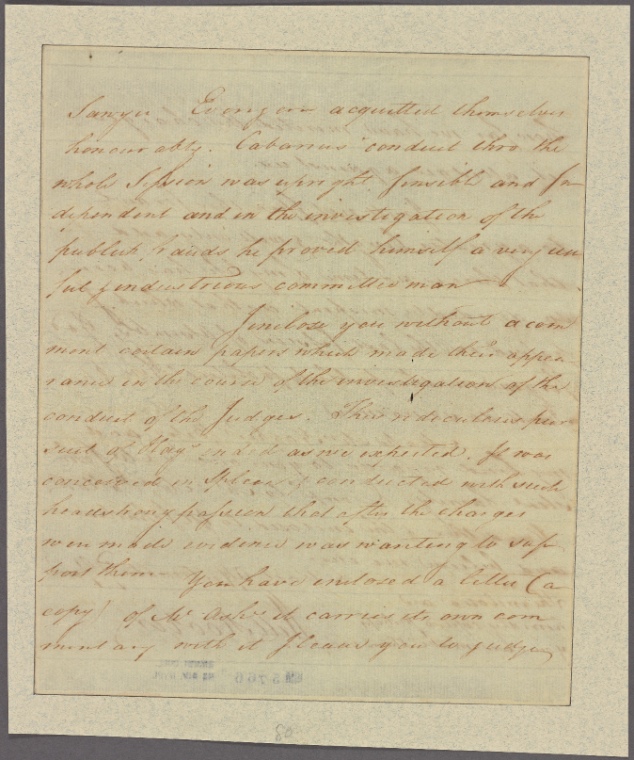 Sawyer Everyone acquitted themselves
honourably. Cabarrus' conduct thro the
whole Session was upright, sensible and In-
dependent and in the investigation of the
publick frauds he proved himself a very use
ful & industrious committee man
I inclose you without a com
ment certain papers which made their appea
rance in the course of the investigation of the
conduct of the Judges. This rediculous pur
suit of Hay ended as we expected. It was
conceived in Spleen & conducted with such
headstrong passion that after the charges
were made evidence was wanting to sup-
port them You have enclosed a letter (a
copy) of Mr Ash's it carries its own com
mentary with it I leave you to judge
80